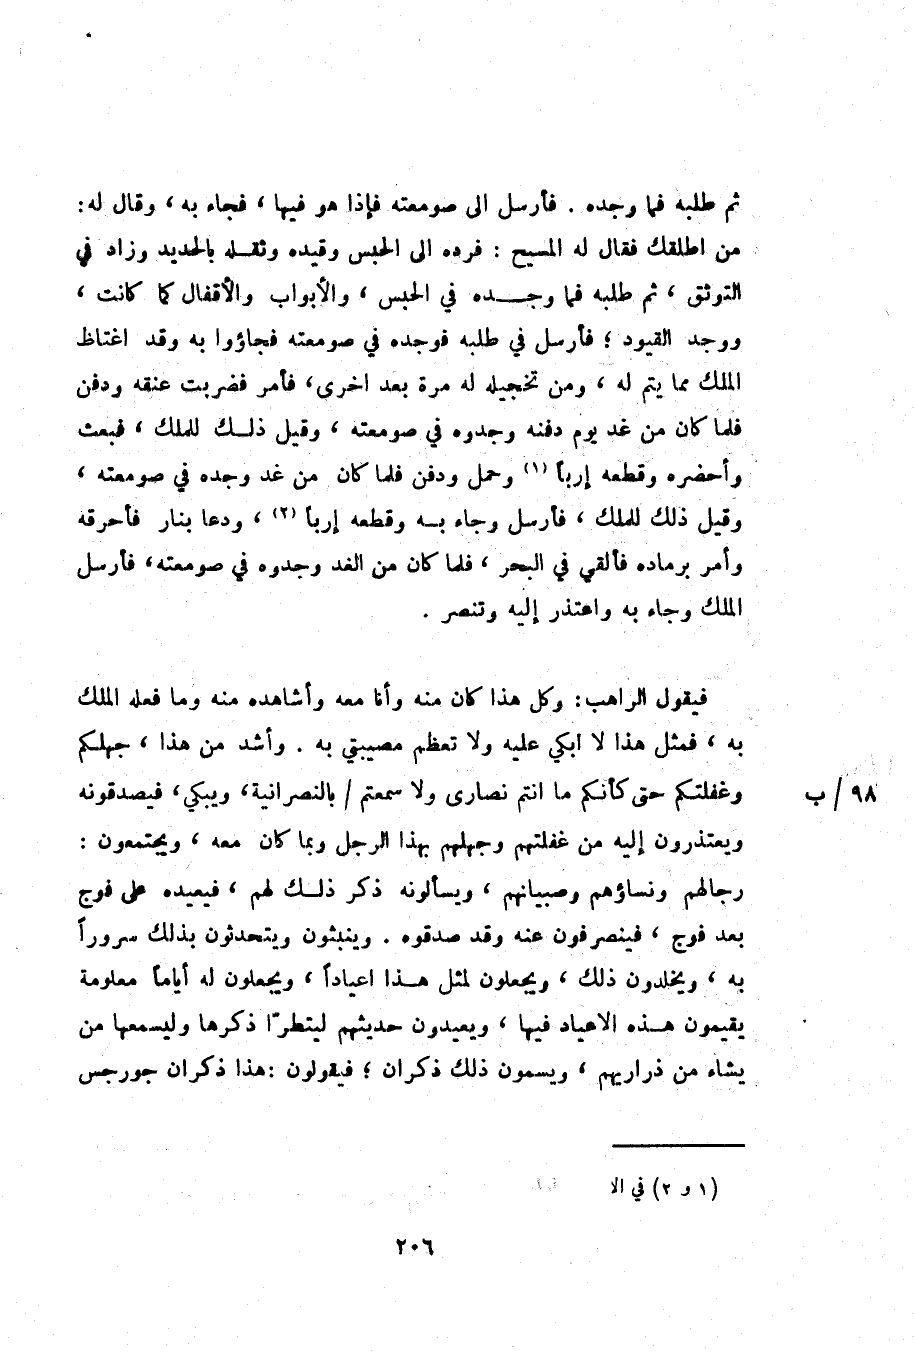 ثم طلبه فما وجده . فأرسل الى صومعته فإذا هو فيها ، فجاء به ، وقال له:
من اطلقك فقال له المسيح : فرده الى الحبس وقيده وثقله بالحديد وزاد في
التوثق ، ثم طلبه فما وجده في الحبس ، والأبواب والأقفال كما كانت ،
ووجد القيود ؛ فأرسل في طلبه فوجده في صومعته فجاؤوا به وقد اغتاظ
الملك مما يتم له ، ومن تخجيله له مرة بعد اخرى، فأمر فضربت عنقه ودفن
فلما كان من غد يوم دفنه وجدوه في صومعته ، وقيل ذلك للملك ، فبعث
وأحضره وقطعه إرباً (١) وحمل ودفن فلما كان من غد وجده في صومعته ،
وقيل ذلك للملك ، فأرسل وجاء به وقطعه إرباً (٢) ، ودعا بنار فأحرقه
وأمر برماده فألقي في البحر ، فلما كان من الغد وجدوه في صومعته، فأرسل
الملك وجاء به واعتذر إليه وتنصر .
فيقول الراهب: وكل هذا كان منه وأنا معه وأشاهده منه وما فعله الملك
به ، فمثل هذا لا ابكي عليه ولا تعظم مصيبتي به . وأشد من هذا ، جهلكم
وغفلتكم حتى كأنكم ما انتم نصارى ولا سمعتم / بالنصرانية، ويبكي، فيصدقونه
٩٨ / ب
ويعتذرون إليه من غفلتهم وجهلهم بهذا الرجل وبما كان معه ، ويجتمعون :
رجالهم ونساؤهم وصبيانهم ، ويسألونه ذكر ذلك لهم ، فيعيده على فوج
بعد فوج ، فينصرفون عنه وقد صدقوه . وينبثون ويتحدثون بذلك سروراً
به ، ويخلدون ذلك ، ويجعلون لمثل هذا اعياداً ، ويجعلون له أياماً معلومة
يقيمون هذه الاعياد فيها ، ويعيدون حديثهم ليتطرّا ذكرها وليسمعها من
يشاء من ذراريهم ، ويسمون ذلك ذكران ؛ فيقولون :هذا ذكران جورجس
(١ و ٢) في الا
٢٠٦